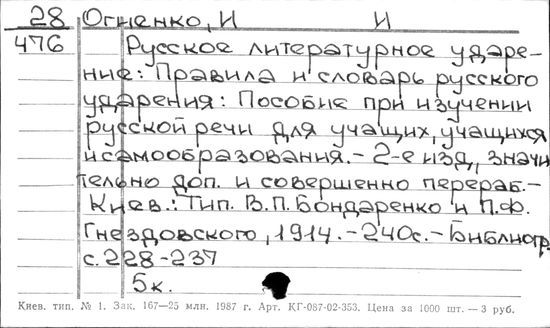 28 Огиенко, И И
476 Русское литературное ударе-
ние: Правила и словарь русского
ударения: Пособие при изучении
русской речи для учащих, учащихся
и самообразования. – 2-е изд, значи
тельно доп. и совершенно перераб. –
Киев.: Тип. В.П. Бондаренко и П.Ф.
Гнездовского, 1914. – 240с. – Библиогр.
с. 228-237
5к.
Киев. тип. № 1. Зак. 167—25 млн. 1987 г. Арт. КГ-087-02-353. Цена за 1000 шт. — 3 руб.